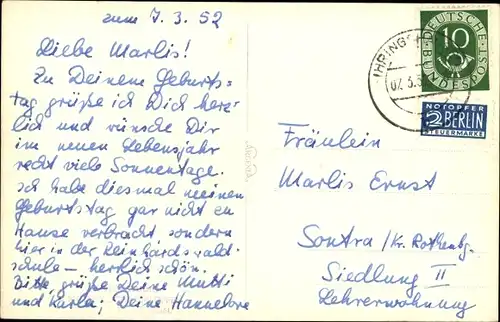 zum 7.3.52
Liebe Marlis!
Zu Deinem Geburts-
tag grüße ich Dich herz-
lich und wünsche Dir
im neuen Lebensjahr
recht viele Sonnentage.
Ich habe diesmal meinen
Geburtstag gar nicht zu
Hause verbracht sondern
hier in der Reinhardswald-
schule – herrlich schön.
Bitte, grüße Deine Mutti
und Karla; Deine Hannelore
IHRINGS
07.3.5
DEUTSCHE
BUNDESPOST
10
NOTOPFER
2 BERLIN
STEUERMARKE
Fräulein
Marlis Ernst
Sontra/Kr. Rothenbg.
Siedlung II
Lehrerwohnung